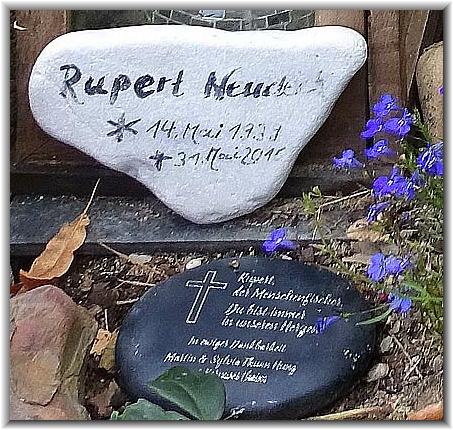 Rupert Neudeck
* 14. Mai 1939
+ 31. Mai 2016
Rupert,
der Menschenfischer,
Du bist immer
in unseren Herzen
In ewiger Dankbarkeit
Martin & Sylvia